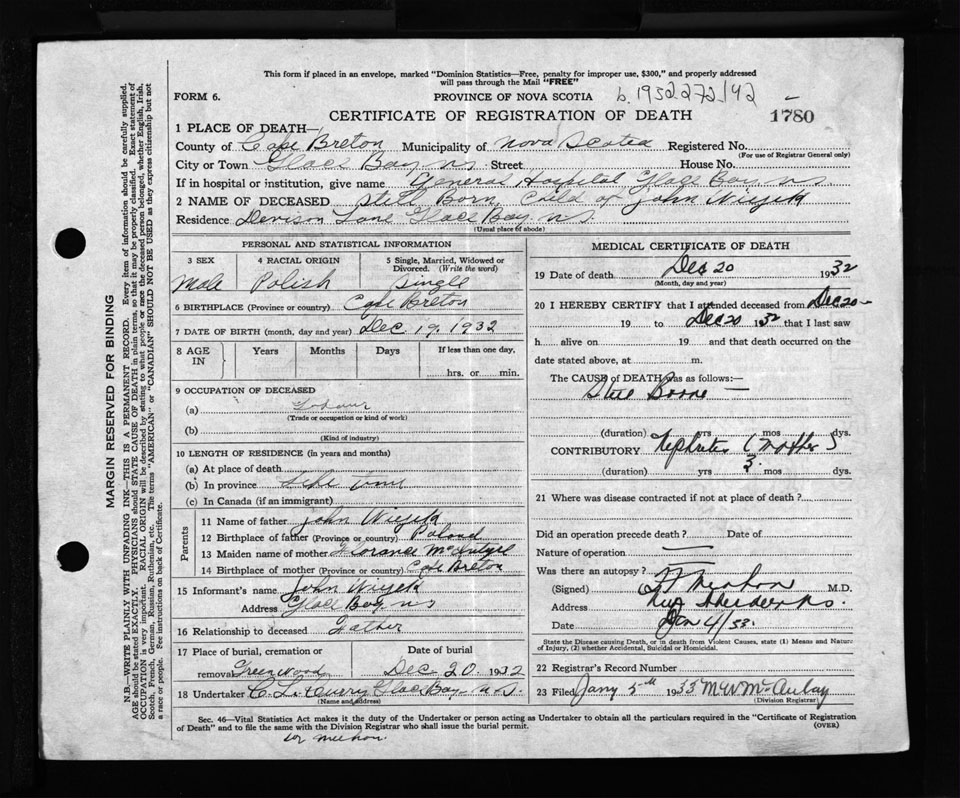 This form if placed in an envelope, marked "Dominion Statistics—Free, penalty for improper use, $300," and properly addressed
will pass through the Mail "FREE"
FORM 6.
PROVINCE OF NOVA SCOTIA
b. 1932 272/42
CERTIFICATE OF REGISTRATION OF DEATH
1780
1 PLACE OF DEATH—
County of Cape Breton Municipality of Nova Scotia Registered No.
(For use of Registrar General only)
City or Town Glace Bay NS Street House No.
If in hospital or institution, give name General Hospital Glace Bay NS
2 NAME OF DECEASED Still Born Child of John Wijek
Residence Lane Glace Bay NS
(Usual place of abode)
PERSONAL AND STATISTICAL INFORMATION
3 SEX
4 RACIAL ORIGIN
5 Single, Married, Widowed or
Divorced. (Write the word)
Male Polish Single
6 BIRTHPLACE (Province or country) Cape Breton
7 DATE OF BIRTH (month, day and year) Dec. 19, 1932
8 AGE
IN
Years Months Days If less than one day,
hrs. or min.
9 OCCUPATION OF DECEASED
(a)
(Trade or occupation or kind of work)
(b)
(Kind of industry)
10 LENGTH OF RESIDENCE (in years and months)
(a) At place of death
(b) In province
(c) In Canada (if an immigrant)
Parents
11 Name of father John Wijek
12 Birthplace of father (Province or country) Poland
13 Maiden name of mother Florance McIntyre
14 Birthplace of mother (Province or country) Cape Breton
15 Informant's name John Wijek
Address Glace Bay NS
16 Relationship to deceased Father
17 Place of burial, cremation or
removal Greenwood
Date of burial
Dec. 20 1932
18 Undertaker C. L. Curry Glace Bay N S.
(Name and address)
MEDICAL CERTIFICATE OF DEATH
19 Date of death Dec 20 1932
(Month, day and year)
20 I HEREBY CERTIFY that I attended deceased from Dec 20 -
19 to Dec 20 1932 that I last saw
h alive on 19 and that death occurred on the
date stated above, at m.
The CAUSE OF DEATH was as follows:—
Still Borne —
(duration) yrs mos dys.
CONTRIBUTORY Nephritis (Mother)
(duration) yrs 3. mos dys.
21 Where was disease contracted if not at place of death?
Did an operation precede death? Date of
Nature of operation
Was there an autopsy?
(Signed) M.D.
Address
Date Jan 4/33.
State the Disease causing Death, or in death from Violent Causes, state (1) Means and Nature
of Injury, (2) whether Accidental, Suicidal or Homicidal.
22 Registrar's Record Number
23 Filed Jany 5th 1933 M W McAulay
(Division Registrar)
Sec. 46—Vital Statistics Act makes it the duty of the Undertaker or person acting as Undertaker to obtain all the particulars required in the "Certificate of Registration
of Death" and to file the same with the Division Registrar who shall issue the burial permit.
(OVER)
MARGIN RESERVED FOR BINDING
N.B.—WRITE PLAINLY WITH UNFADING INK—THIS IS A PERMANENT RECORD. Every item of information should be carefully supplied.
AGE should be stated EXACTLY. PHYSICIANS should STATE CAUSE OF DEATH in plain terms, so that it may be properly classified. Exact statement of
OCCUPATION is very important. RACIAL ORIGIN will be described by stating to what people or race the deceased person belonged, whether English, Irish,
Scotch, French, German, Russian, Ruthenian, etc. The terms "AMERICAN" or "CANADIAN" SHOULD NOT BE USED as they express citizenship but not
a race or people. See instructions on back of Certificate.